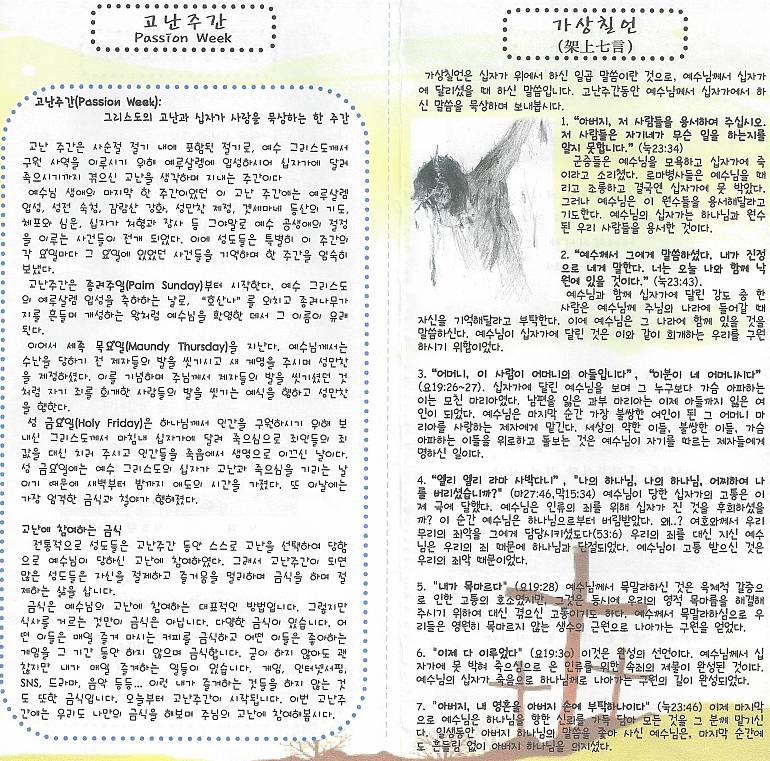 고난주간
Passion Week
고난주간(Passion Week):
그리스도의 고난과 십자가 사랑을 묵상하는 한 주간
고난 주간은 사순절 절기 내에 포함된 절기로, 예수 그리스도께서
구원 사역을 이루시기 위해 예루살렘에 입성하시어 십자가에 달려
죽으시기까지 겪으신 고난을 생각하며 지내는 주간이다
예수님 생애의 마지막 한 주간이었던 이 고난 주간에는 예루살렘
입성, 성전 숙청, 감람산 강화, 성만찬 제정, 겟세마네 동산의 기도,
체포와 심문, 십자가 처형과 장사 등 그야말로 예수 공생애의 절정
을 이루는 사건들이 전개 되었다. 이에 성도들은 특별히 이 주간의
각 요일마다 그 요일에 있었던 사건들을 기억하며 한 주간을 엄숙히
보냈다.
고난주간은 종려주일(Palm Sunday)부터 시작한다. 예수 그리스도
의 예루살렘 입성을 축하하는 날로, "호산나" 를 외치고 종려나무가
지를 흔들며 개성하는 왕처럼 예수님을 환영한 데서 그 이름이 유래
된다.
이어서 세족 목요일(Maundy Thursday)을 지난다. 예수님께서는
수난을 당하기 전 제자들의 발을 씻기시고 새 계명을 주시며 성만찬
을 제정하셨다. 이를 기념하며 주님께서 제자들의 발을 씻기셨던 것
처럼 자기 죄를 회개한 사람들의 발을 씻기는 예식을 행하고 성만찬
을 행한다.
성 금요일(Holy Friday)은 하나님께서 인간을 구원하시기 위해 보
내신 그리스도께서 마침내 십자가에 달려 죽으심으로 죄인들의 죄
값을 대신 치러 주시고 인간들을 죽음에서 생명으로 이끄신 날이다.
성 금요일에는 예수 그리스도의 십자가 고난과 죽으심을 기리는 날
이기 때문에 새벽부터 밤까지 애도의 시간을 가졌다. 또 이날에는
가장 엄격한 금식과 철야가 행해졌다.
고난에 참여하는 금식
전통적으로 성도들은 고난주간 동안 스스로 고난을 선택하여 당함
으로 예수님이 당하신 고난에 참여하였다. 그래서 고난주간이 되면
많은 성도들은 자신을 절제하고 즐거움을 멀리하며 금식을 하며 절
제하는 삶을 삽니다.
금식은 예수님의 고난에 참여하는 대표적인 방법입니다. 그렇지만
식사를 거르는 것만이 금식은 아닙니다. 다양한 금식이 있습니다. 어
떤 이들은 매일 즐겨 마시는 커피를 금식하고 어떤 이들은 좋아하는
게임을 그 기간 동안 하지 않으며 금식합니다. 굳이 하지 않아도 괜
찮지만 내가 매일 즐겨하는 일들이 있습니다. 게임, 인터넷서핑,
SNS, 드라마, 음악 등등... 이런 내가 즐겨하는 것들을 하지 않는 것
도 또한 금식입니다. 오늘부터 고난주간이 시작됩니다. 이번 고난주
간에는 우리도 나만의 금식을 해보며 주님의 고난에 참여해봅시다.
가상칠언
(架上七言)
가상칠언은 십자가 위에서 하신 일곱 말씀이란 것으로, 예수님께서 십자가
에 달리셨을 때 하신 말씀입니다. 고난주간동안 예수님께서 십자가에서 하
신 말씀을 묵상하며 보내봅시다.
1. "아버지, 저 사람들을 용서하여 주십시오.
저 사람들은 자기네가 무슨 일을 하는지를
알지 못합니다." (눅23:34)
군중들은 예수님을 모욕하고 십자가에 죽
이라고 소리쳤다. 로마병사들은 예수님을 때
리고 조롱하고 결국엔 십자가에 못 박았다.
그러나 예수님은 이 원수들을 용서해달라고
기도한다. 예수님의 십자가는 하나님과 원수
된 우리 사람들을 용서한 것이다.
2. "예수께서 그에게 말씀하셨다. 내가 진정
으로 네게 말한다. 너는 오늘 나와 함께 낙
원에 있을 것이다." (눅23:43).
예수님과 함께 십자가에 달린 강도 중 한
사람은 예수께 주님의 나라에 들어갈 때
자신을 기억해달라고 부탁한다. 이에 예수님은 그 나라에 함께 있을 것을
말씀하신다. 예수님이 십자가에 달린 것은 이와 같이 회개하는 우리를 구원
하시기 위함이었다.
3. "어머니, 이 사람이 어머니의 아들입니다", "이분이 네 어머니시다"
(요19:26~27). 십자가에 달린 예수님을 보며 그 누구보다 가슴 아파하는
이는 모친 마리아였다. 남편을 잃은 과부 마리아는 이제 아들까지 잃은 여
인이 되었다. 예수님은 마지막 순간 가장 불쌍한 여인이 된 그 어머니 마
리아를 사랑하는 제자에게 맡긴다. 세상의 약한 이들, 불쌍한 이들, 가슴
아파하는 이들을 위로하고 돌보는 것은 예수님이 자기를 따르는 제자들에게
명하신 일이다.
4. "엘리 엘리 라마 사박다니", "나의 하나님, 나의 하나님, 어찌하여 나
를 버리셨습니까?" (마27:46,막15:34) 예수님이 당한 십자가의 고통은 이
제 극에 달했다. 예수님은 인류의 죄를 위해 십자가 진 것을 후회하셨을
까? 이 순간 예수님은 하나님으로부터 버림받았다. 왜..? 여호와께서 우리
무리의 죄악을 그에게 담당시키셨도다(53:6) 우리의 죄를 대신 지신 예수
님은 우리의 죄 때문에 하나님과 단절되었다. 예수님이 고통 받으신 것은
우리의 죄악 때문이었다.
5. "내가 목마르다" (요19:28) 예수님께서 목말라하신 것은 육체적 갈증으
로 인한 고통의 호소였지만, 그것은 동시에 우리의 영적 목마름을 해결해
주시기 위하여 대신 겪으신 고통이기도 하다. 예수께서 목말라하심으로 우
리들은 영원히 목마르지 않는 생수의 근원으로 나아가는 구원을 얻었다.
6. "이제 다 이루었다" (요19:30) 이것은 완성의 선언이다. 예수님께서 십
자가에 못 박혀 죽으심으로 온 인류를 위한 속죄의 제물이 완성된 것이다.
예수님의 십자가, 죽음으로 하나님께로 나아가는 구원의 길이 완성되었다.
7. "아버지, 내 영혼을 아버지 손에 부탁하나이다" (눅23:46) 이제 마지막
으로 예수님은 하나님을 향한 신뢰를 가득 담아 모든 것을 그 분께 맡기신
다. 일생동안 아버지 하나님의 말씀을 좇아 사신 예수님은, 마지막 순간에
도 흔들림 없이 아버지 하나님을 의지셨다.